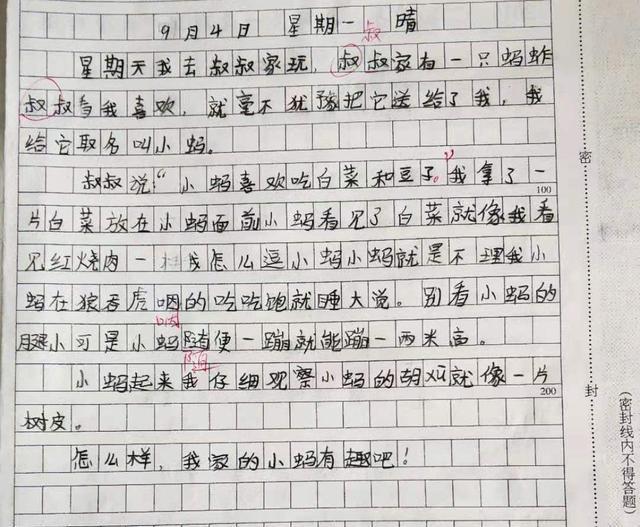 9月4日 星期一 晴
叔
星期天我去叔叔家玩,叔叔家有一只蚂蚱
叔叔看我喜欢,就毫不犹豫把它送给了我,我
给它取名叫小蚂。
叔叔说:“小蚂喜欢吃白菜和豆子。”我拿了一
100
片白菜放在小蚂面前小蚂看见了白菜就像我看
见红烧肉一样我怎么逗小蚂小蚂就是不理我小
蚂在狼吞虎咽的吃吃饱就睡大说。别看小蚂的
腿小可是小蚂随便一蹦就能蹦一两米高。
随
小蚂起来我仔细观察小蚂的胡须就像一片
200
树皮。
怎么样,我家的小蚂有趣吧!
密
封
(密封线内不得答题)